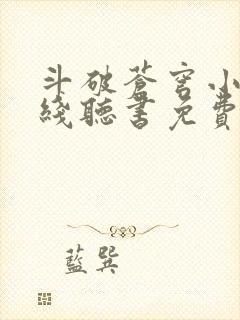 斗破蒼穹小
綫聽書免費
藍巽